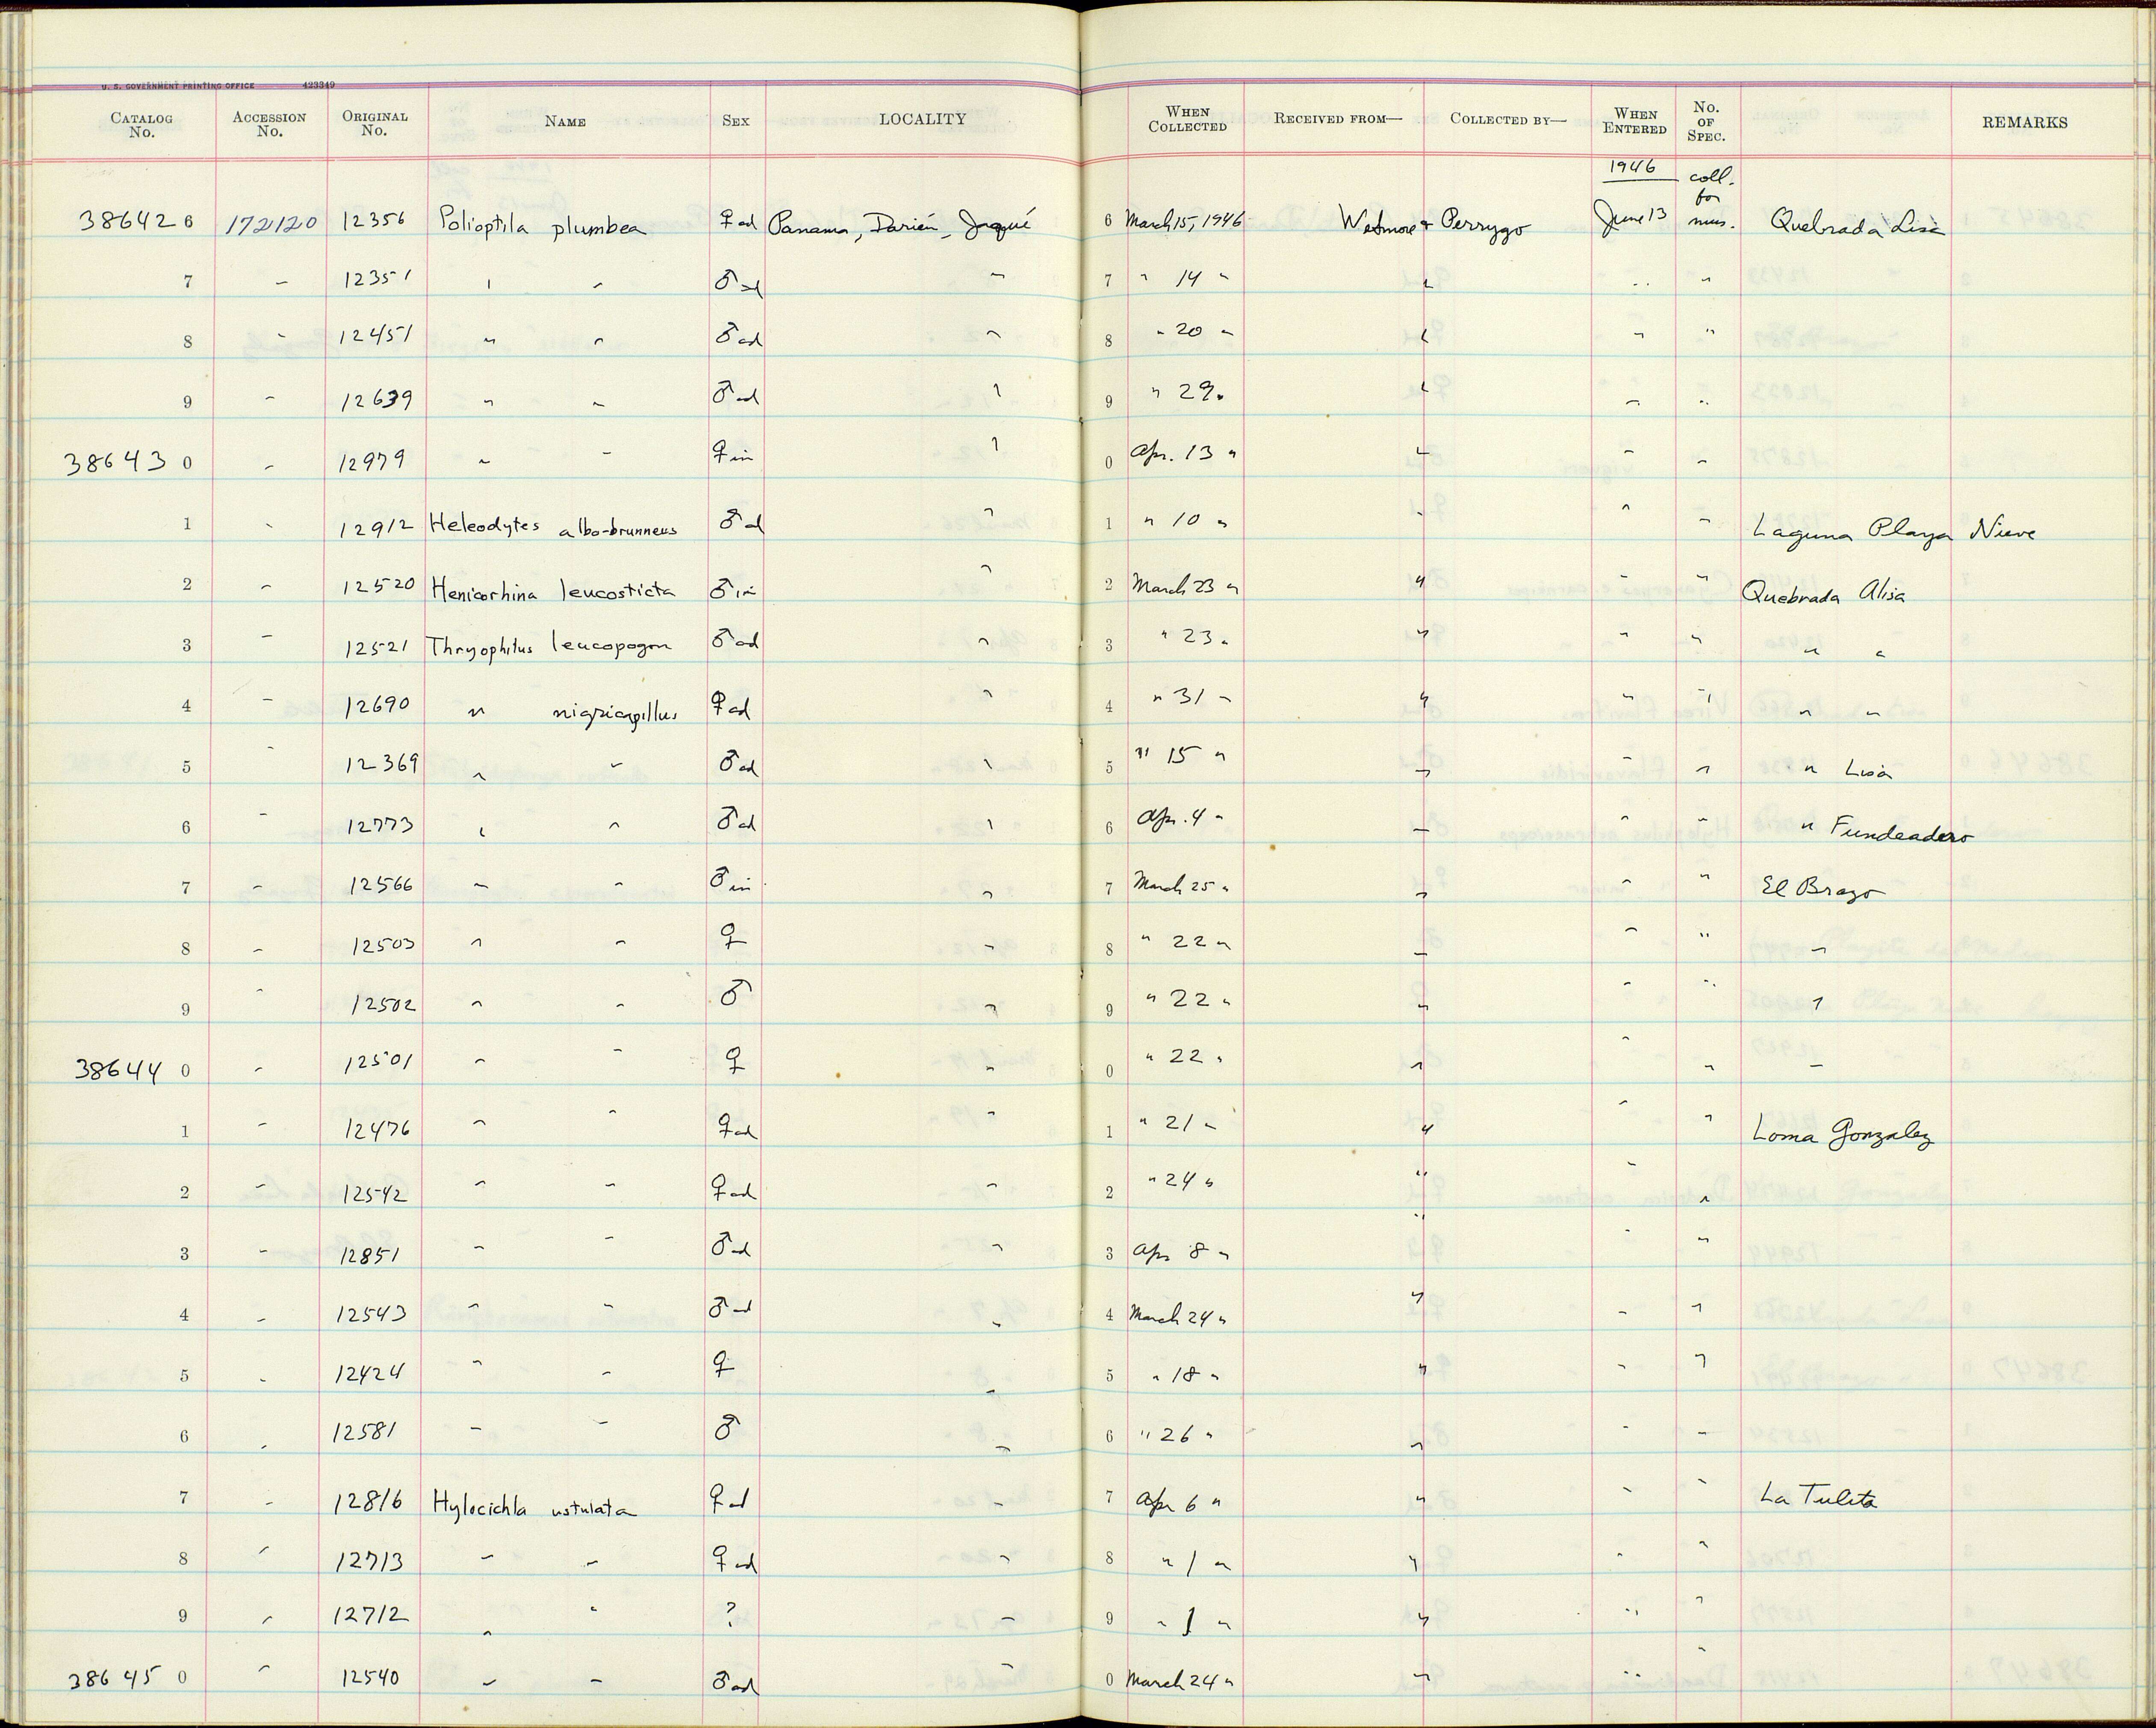 U. S. GOVERNMENT PRINTING OFFICE 423349
CATALOG No. ACCESSION No. ORIGINAL No. NAME SEX LOCALITY WHEN COLLECTED RECEIVED FROM— COLLECTED BY— WHEN ENTERED No. OF SPEC. REMARKS
1946 coll. for
386426 172120 12356 Polioptila plumbea ♀ ad Panama, Darién, Jaqué 6 March 15, 1946 Wetmore & Perrygo June 13 mus. Quebrada Lisa
7 " 12351 " " ♂ ad " 7 " 14 " " " "
8 " 12451 " " ♂ ad " 8 " 20 " " " "
9 " 12639 " " ♂ ad " 9 " 29 " " " "
386430 " 12979 " " ♀ im " 0 Apr. 13 " " " "
1 " 12912 Heleodytes albo-brunneus ♂ ad " 1 " 10 " " " " Laguna Playa
2 " 12520 Henicorhina leucosticta ♂ im " 2 March 23 " " " " Quebrada Alisa
3 " 12521 Thryophilus leucopogon ♂ ad " 3 " 23 " " " " " "
4 " 12690 " nigricapillus ♀ ad " 4 " 31 " " " " " "
5 " 12369 " " ♂ ad " 5 " 15 " " " " " Lisa
6 " 12773 " " ♂ ad " 6 Apr. 4 " " " " " Fundeadero
7 " 12566 " " ♂ im " 7 March 25 " " " " El Brazo
8 " 12503 " " ♀ " 8 " 22 " " " " "
9 " 12502 " " ♂ " 9 " 22 " " " " "
386440 " 12501 " " ♀ " 0 " 22 " " " " "
1 " 12476 " " ♀ ad " 1 " 21 " " " " Loma Gonzalez
2 " 12542 " " ♀ ad " 2 " 24 " " " "
3 " 12851 " " ♂ ad " 3 Apr 8 " " " "
4 " 12543 " " ♂ ad " 4 March 24 " " " "
5 " 12424 " " ♀ " 5 " 18 " " " "
6 " 12581 " " ♂ " 6 " 26 " " " "
7 " 12816 Hylocichla ustulata ♀ ad " 7 Apr 6 " " " " La Tuleta
8 " 12713 " " ♀ ad " 8 " 1 " " " "
9 " 12712 " " ? " 9 " 1 " " " "
386450 " 12540 " " ♂ ad " 0 March 24 " " " "